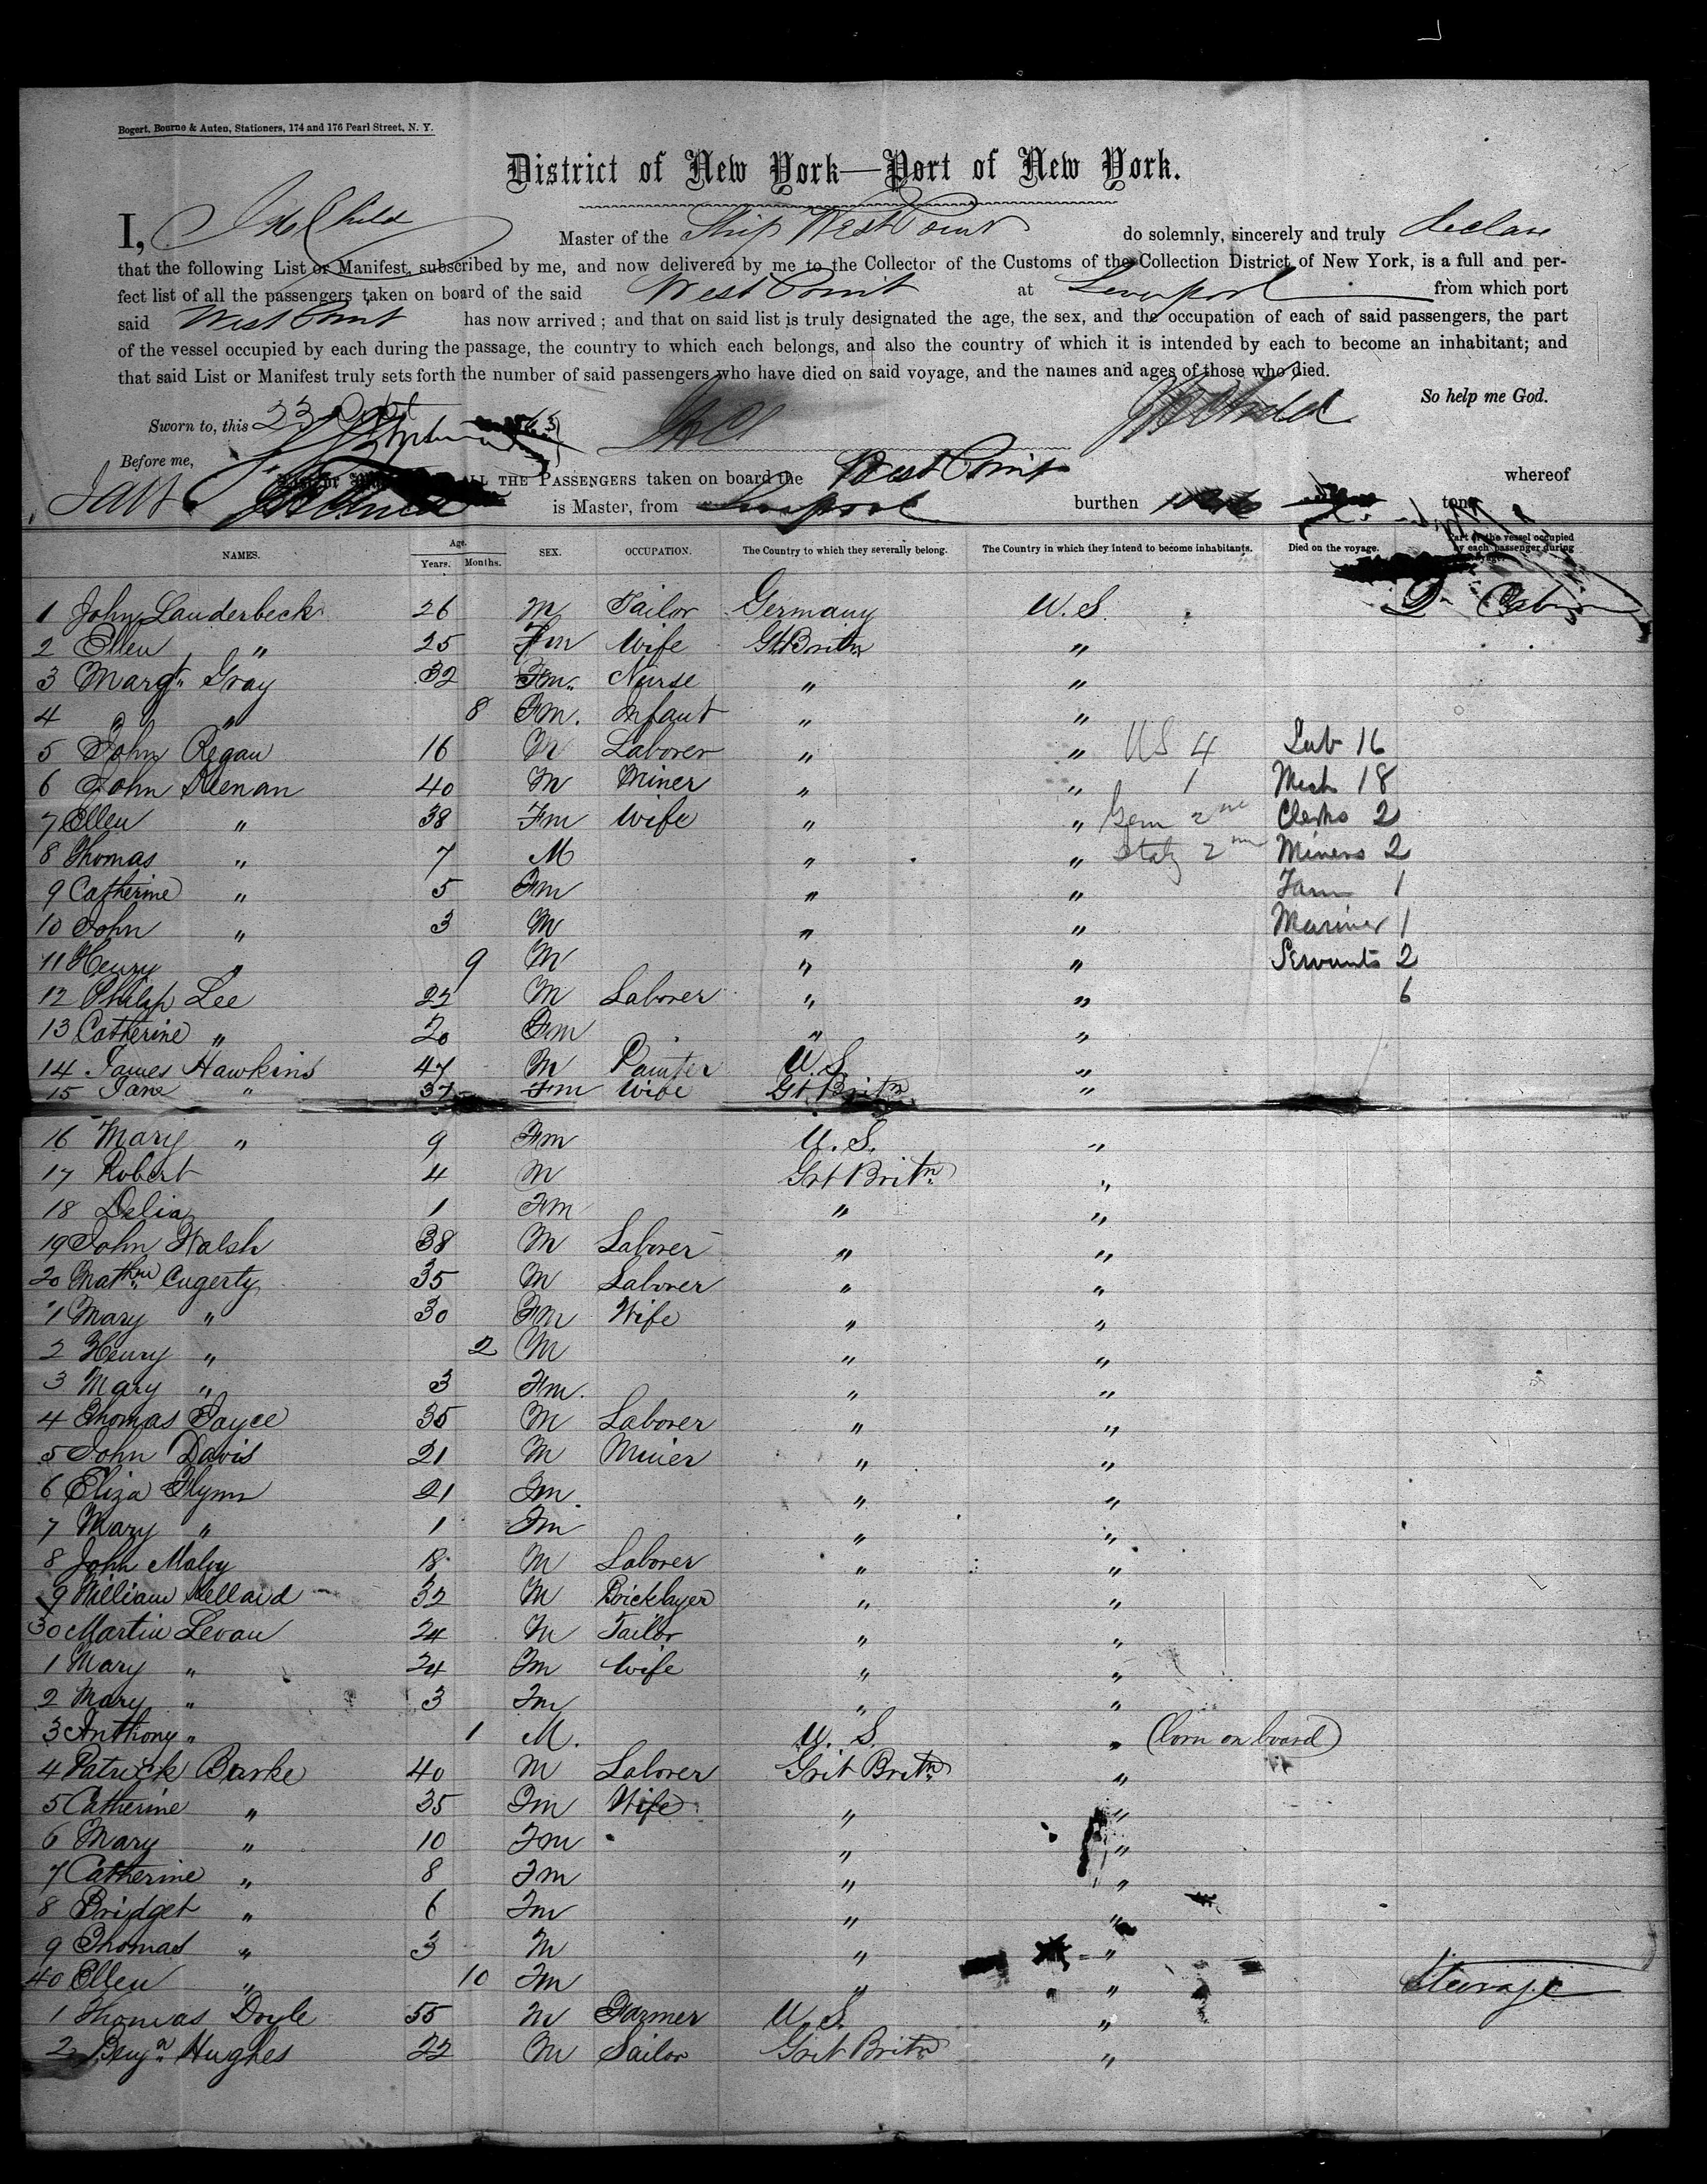 Bogert, Bourne & Auten, Stationers, 174 and 176 Pearl Street, N. Y.
District of New York—Port of New York.
I, Child Master of the Ship West Point do solemnly, sincerely and truly declare
that the following List or Manifest, subscribed by me, and now delivered by me to the Collector of the Customs of the Collection District of New York, is a full and per-
fect list of all the passengers taken on board of the said West Point at Liverpool from which port
said West Point has now arrived; and that on said list is truly designated the age, the sex, and the occupation of each of said passengers, the part
of the vessel occupied by each during the passage, the country to which each belongs, and also the country of which it is intended by each to become an inhabitant; and
that said List or Manifest truly sets forth the number of said passengers who have died on said voyage, and the names and ages of those who died.
So help me God.
Sworn to, this 23
Before me,
ALL THE PASSENGERS taken on board the West Point whereof
is Master, from Liverpool burthen tons
NAMES. Age. Years. Months. SEX. OCCUPATION. The Country to which they severally belong. The Country in which they intend to become inhabitants. Died on the voyage. Part of the vessel occupied by each passenger during
1 John Lauderbeck 26 M Tailor Germany U.S.
2 Ellen " 25 Fm Wife Gt Britn "
3 Margt. Gray 32 Fm. Nurse " "
4 " " 8 Fm. Infant " "
5 John Regan 16 M Laborer " " US 4 Lab 16
6 John Keenan 40 M Miner " " 1 Mech 18
7 Ellen " 38 Fm Wife " " Germ 2 Clerks 2
8 Thomas " 7 M " " Italy 2 Miners 2
9 Catherine " 5 Fm " " Farm 1
10 John " 3 M " " Mariner 1
11 Henry " 9 M " " Servants 2
12 Philip Lee 22 M Laborer " " 6
13 Catherine " 20 Fm " "
14 James Hawkins 47 M Painter U.S. "
15 Jane " 37 Fm Wife Gt Britn "
16 Mary " 9 Fm U.S. "
17 Robert 4 M Grt Britn "
18 Delia 1 Fm " "
19 John Walsh 38 M Laborer " "
20 Mathew Cugerty 35 M Laborer " "
1 Mary " 30 Fm Wife " "
2 Henry " 2 M " "
3 Mary " 3 Fm. " "
4 Thomas Jayce 35 M Laborer " "
5 John Davis 21 M Miner " "
6 Eliza Flynn 21 Fm. " "
7 Mary " 1 Fm " "
8 John Maloy 18 M Laborer " "
9 William Kellaid 32 M Bricklayer " "
30 Martin Levan 24 M Tailor " "
1 Mary " 24 Fm Wife " "
2 Mary " 3 Fm " "
3 Anthony " 1 M. U.S. " (born on board)
4 Patrick Burke 40 M Laborer Grt Britn "
5 Catherine " 35 Fm Wife " "
6 Mary " 10 Fm " "
7 Catherine " 8 Fm " "
8 Bridget " 6 Fm " "
9 Thomas " 3 M " "
40 Ellen " 10 Fm " " Steerage
1 Thomas Doyle 55 M Farmer U.S. "
2 Benjn Hughes 22 M Sailor Grt Britn "